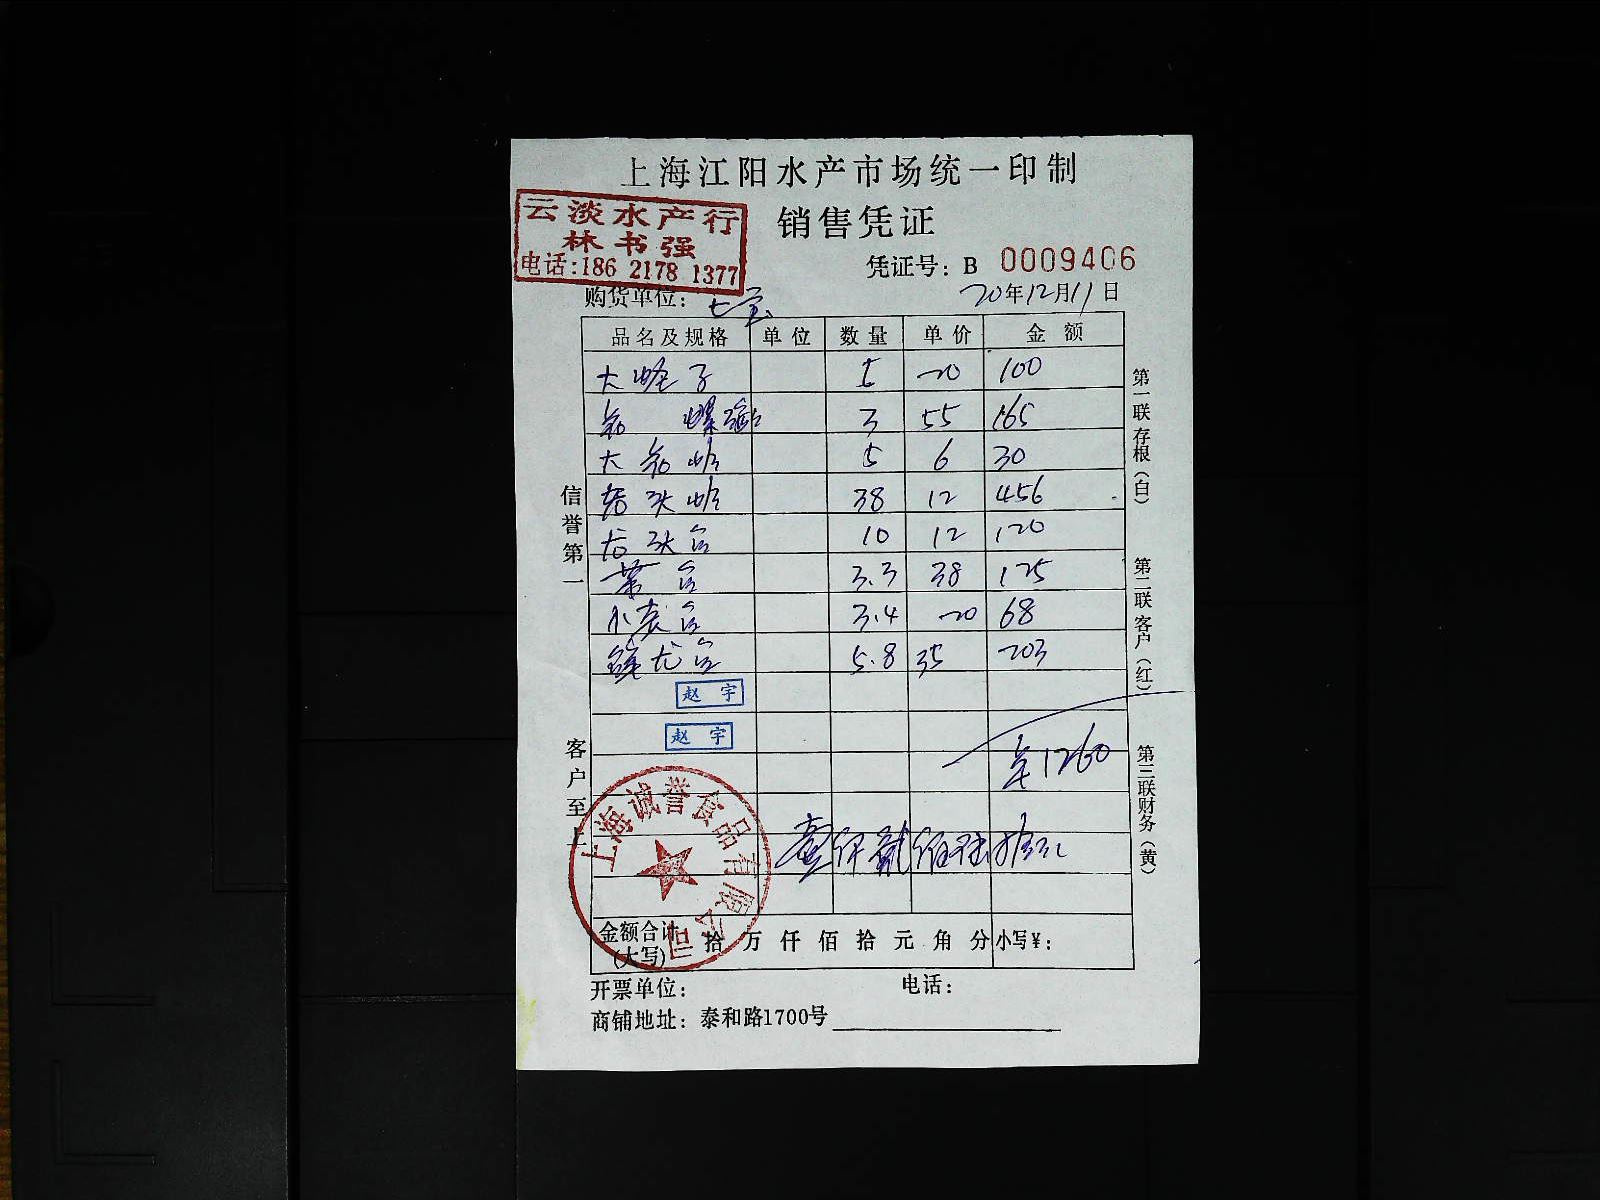 上海江阳水产市场统一印制
销售凭证
云淡水产行
林书强
电话:186 2178 1377
凭证号: B 0009406
购货单位: 七宝
20年12月11日
品名及规格 单位 数量 单价 金额
大蛏子 5 20 100
3 55 165
大 5 6 30
头 38 12 456
头 10 12 120
3.3 38 125
小 3.4 20 68
5.8 35 203
赵宇
赵宇
1260
壹仟贰佰陆拾元
上海诚誉食品有限公司
金额合计(大写) 拾 万 仟 佰 拾 元 角 分 小写¥:
开票单位: 电话:
商铺地址: 泰和路1700号
信誉第一
客户至上
第一联 存根(白)
第二联 客户(红)
第三联 财务(黄)